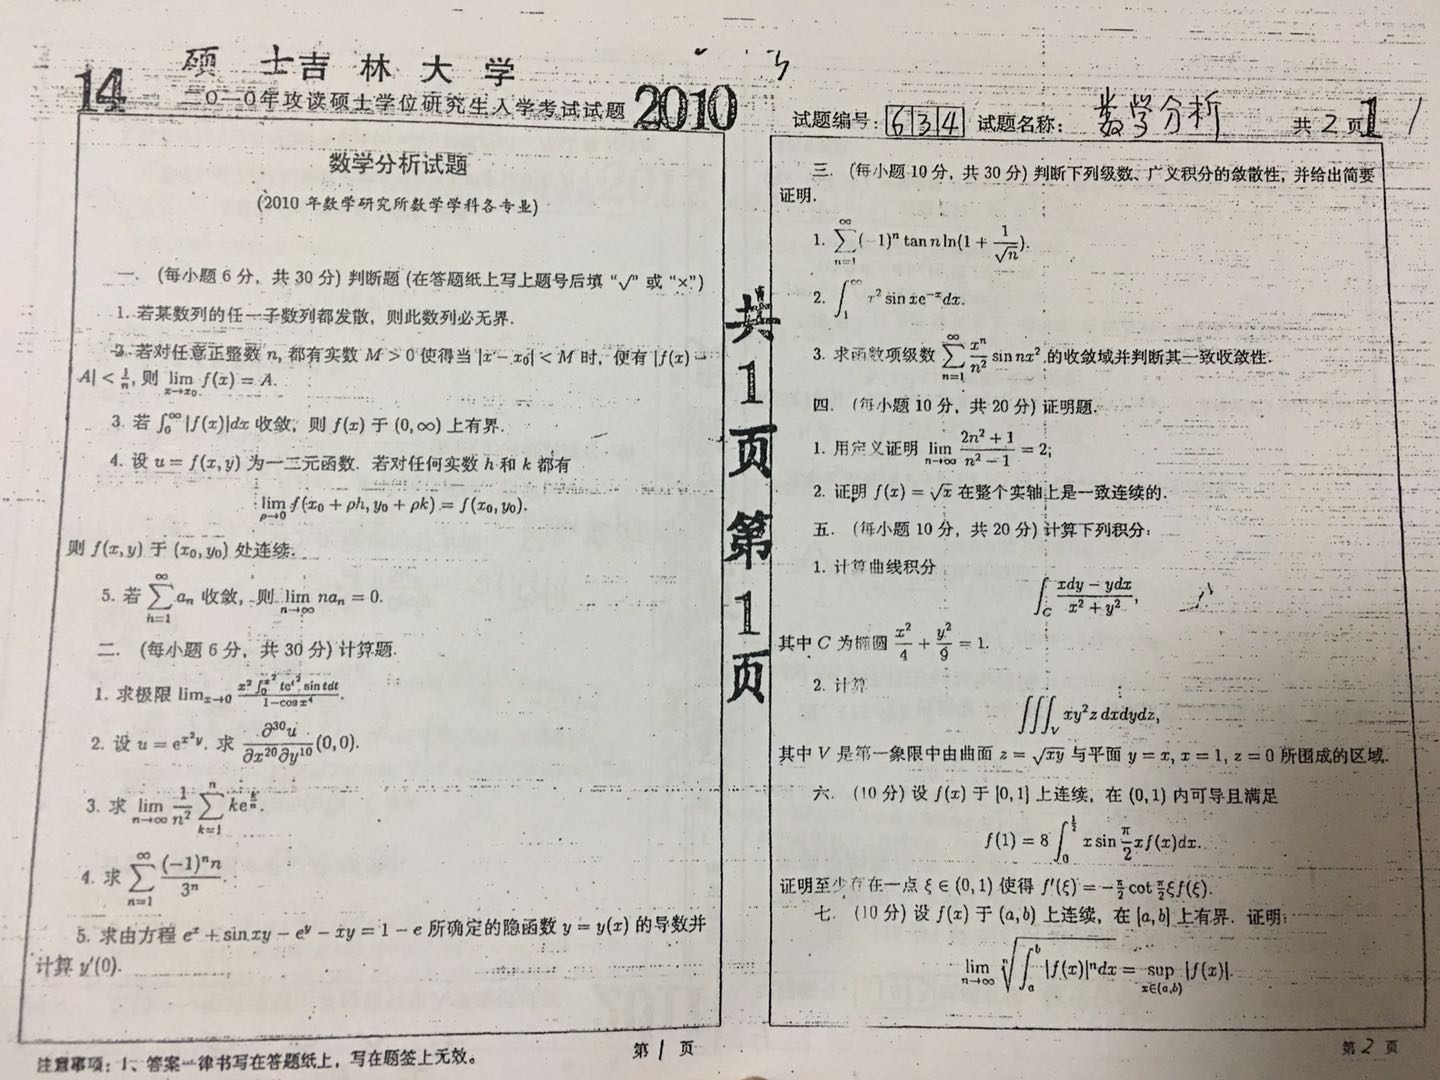 14 硕士吉林大学
二〇一〇年攻读硕士学位研究生入学考试试题 2010
数学分析试题
(2010 年数学研究所数学学科各专业)
一. (每小题 6 分, 共 30 分) 判断题 (在答题纸上写上题号后填 “√” 或 “×”)
1. 若某数列的任一子数列都发散, 则此数列必无界.
2. 若对任意正整数 n, 都有实数 M > 0 使得当 |x − x₀| < M 时, 便有 |f(x) −
A| < 1/n, 则 lim_{x→x₀} f(x) = A.
3. 若 ∫_0^∞ |f(x)|dx 收敛, 则 f(x) 于 (0, ∞) 上有界.
4. 设 u = f(x, y) 为一二元函数. 若对任何实数 h 和 k 都有
lim_{ρ→0} f(x₀ + ρh, y₀ + ρk) = f(x₀, y₀).
则 f(x, y) 于 (x₀, y₀) 处连续.
5. 若 ∑_{n=1}^∞ aₙ 收敛, 则 lim_{n→∞} naₙ = 0.
二. (每小题 6 分, 共 30 分) 计算题.
1. 求极限 lim_{x→0} (x² ∫_0^{x²} te^{t²} sin tdt)/(1−cos x⁴).
2. 设 u = e^{x²y}. 求 ∂³⁰u/∂x²⁰∂y¹⁰ (0, 0).
3. 求 lim_{n→∞} 1/n² ∑_{k=1}^n ke^{k/n}.
4. 求 ∑_{n=1}^∞ (−1)ⁿn/3ⁿ.
5. 求由方程 eˣ + sin xy − e^y − xy = 1 − e 所确定的隐函数 y = y(x) 的导数并
计算 y′(0).
注意事项: 1、答案一律书写在答题纸上, 写在题签上无效。
第 1 页
共1页第1页
试题编号: 634 试题名称: 数学分析 共 2 页 1
三. (每小题 10 分, 共 30 分) 判断下列级数、广义积分的敛散性, 并给出简要
证明.
1. ∑_{n=1}^∞ (−1)ⁿ tan n ln(1 + 1/√n).
2. ∫_1^∞ x² sin xe^{−x}dx.
3. 求函数项级数 ∑_{n=1}^∞ xⁿ/n² sin nx² 的收敛域并判断其一致收敛性.
四. (每小题 10 分, 共 20 分) 证明题.
1. 用定义证明 lim_{n→∞} (2n² + 1)/(n² − 1) = 2;
2. 证明 f(x) = √x 在整个实轴上是一致连续的.
五. (每小题 10 分, 共 20 分) 计算下列积分:
1. 计算曲线积分
∫_C (xdy − ydx)/(x² + y²),
其中 C 为椭圆 x²/4 + y²/9 = 1.
2. 计算
∭_V xy²z dxdydz,
其中 V 是第一象限中由曲面 z = √xy 与平面 y = x, x = 1, z = 0 所围成的区域.
六. (10 分) 设 f(x) 于 [0, 1] 上连续, 在 (0, 1) 内可导且满足
f(1) = 8 ∫_0^{1/2} x sin π/2 xf(x)dx.
证明至少存在一点 ξ ∈ (0, 1) 使得 f′(ξ) = −π/2 cot π/2 ξf(ξ).
七. (10 分) 设 f(x) 于 (a, b) 上连续, 在 [a, b] 上有界. 证明:
lim_{n→∞} ⁿ√(∫_a^b |f(x)|ⁿdx) = sup_{x∈(a,b)} |f(x)|.
第 2 页